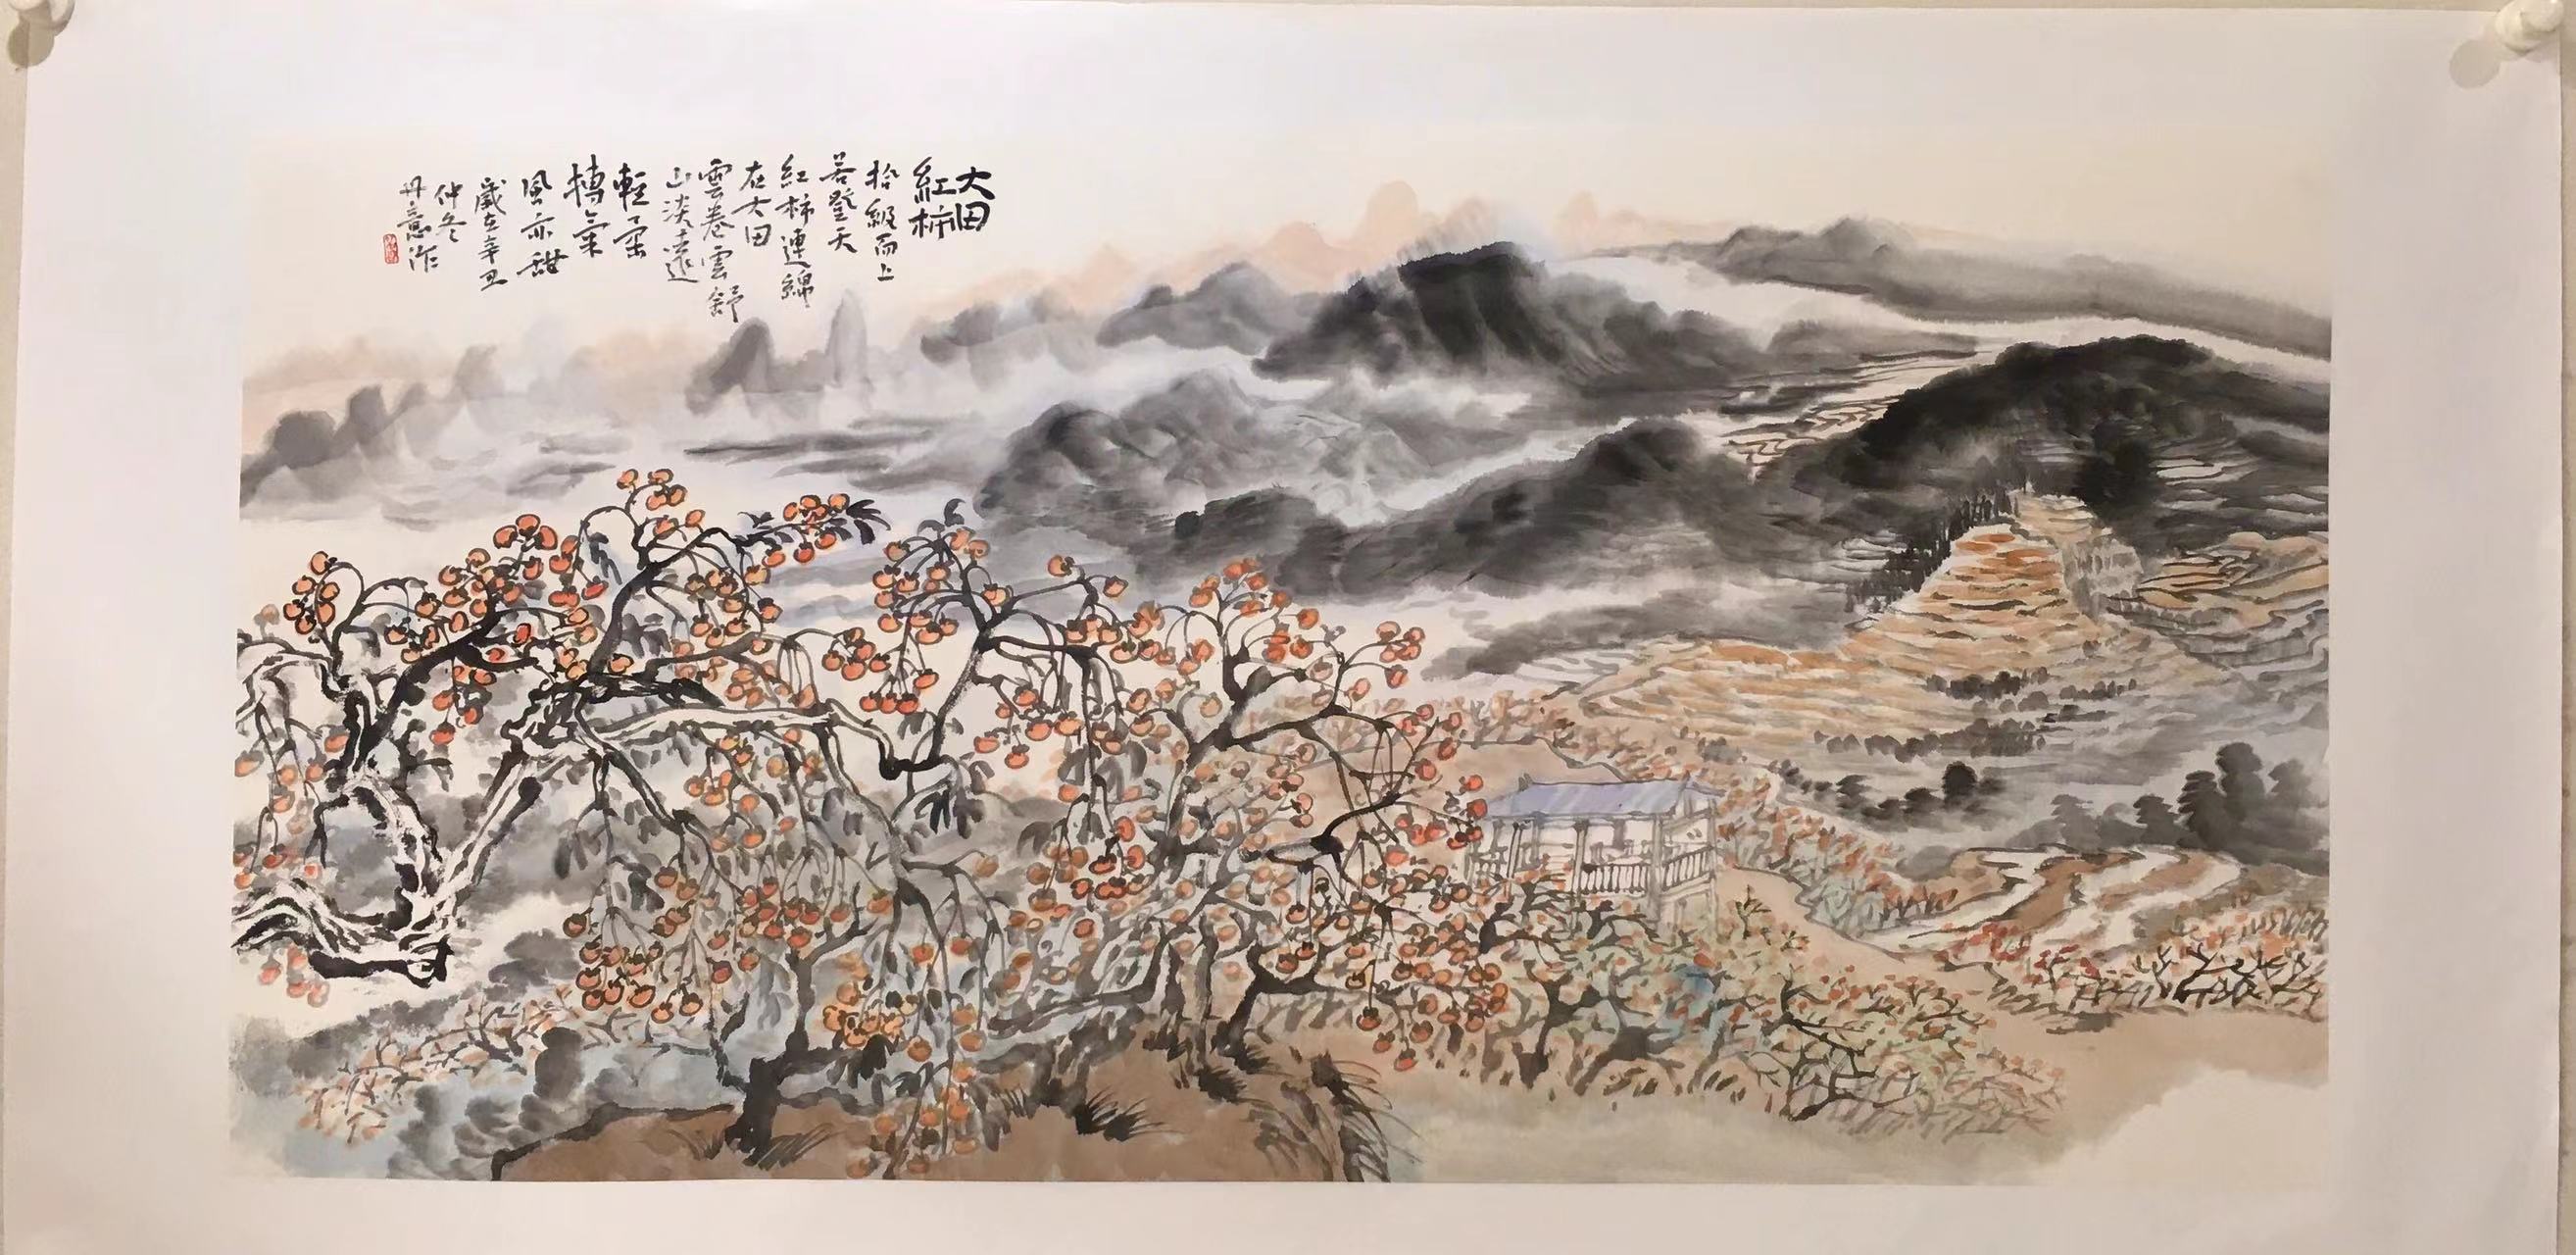 大田
紅柿
拾級而上
若登天
紅柿連綿
在大田
雲卷雲舒
山淡遠
輕柔
摶氣
風亦甜
歲在辛丑
仲冬
丹意作